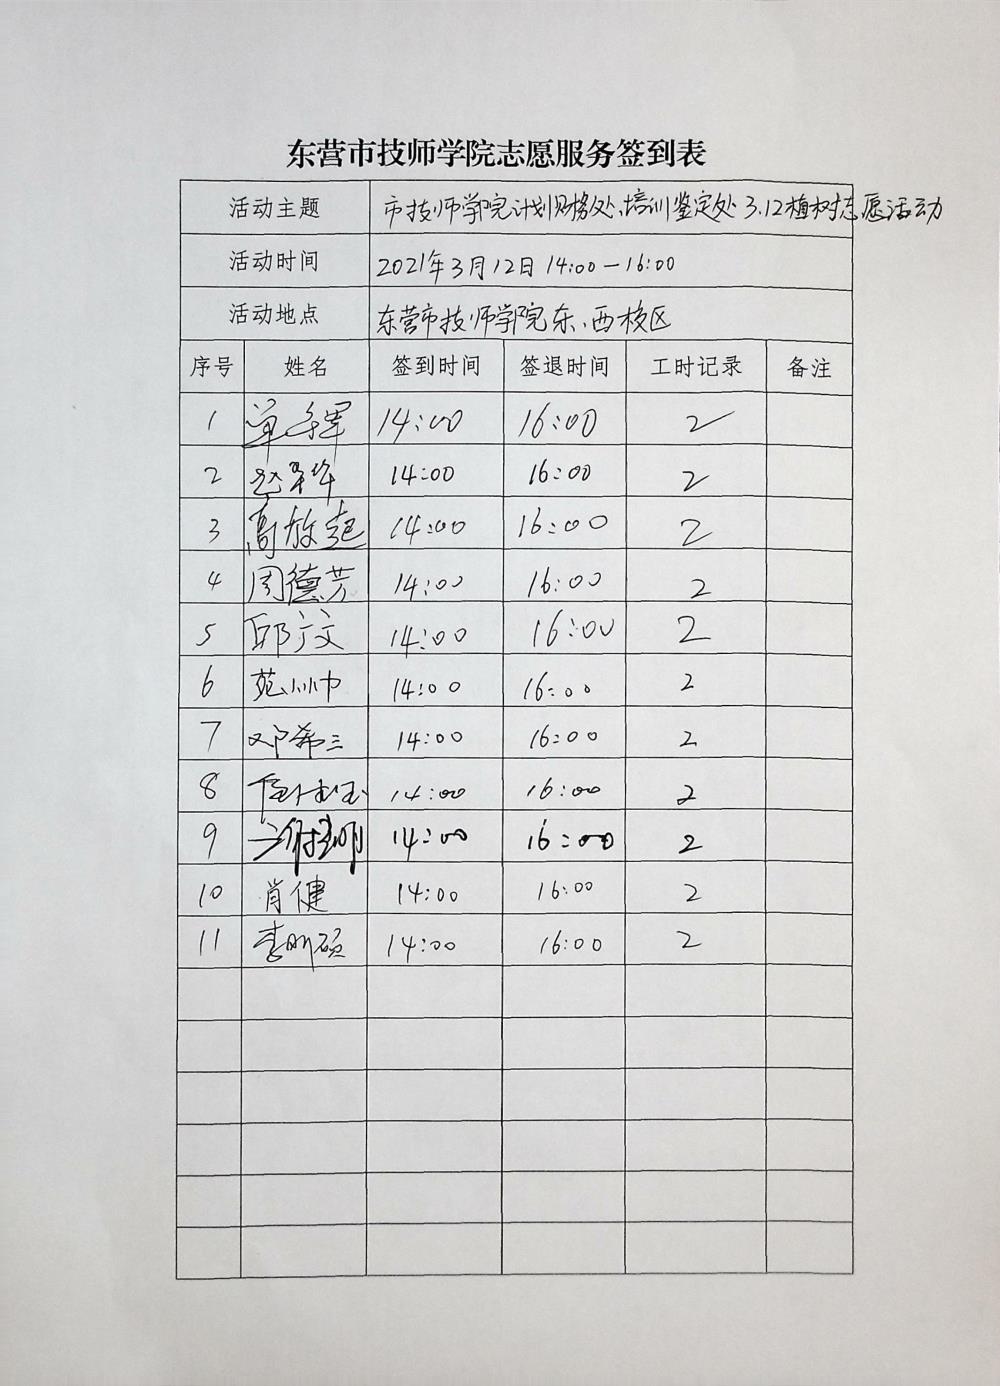 东营市技师学院志愿服务签到表
活动主题 市技师学院计划财务处、培训鉴定处 3.12植树志愿活动
活动时间 2021年3月12日 14:00—16:00
活动地点 东营市技师学院东、西校区
序号 姓名 签到时间 签退时间 工时记录 备注
1 14:00 16:00 2
2 14:00 16:00 2
3 高放起 14:00 16:00 2
4 周德芳 14:00 16:00 2
5 邱文 14:00 16:00 2
6 14:00 16:00 2
7 邓希三 14:00 16:00 2
8 14:00 16:00 2
9 14:00 16:00 2
10 肖健 14:00 16:00 2
11 李明硕 14:00 16:00 2